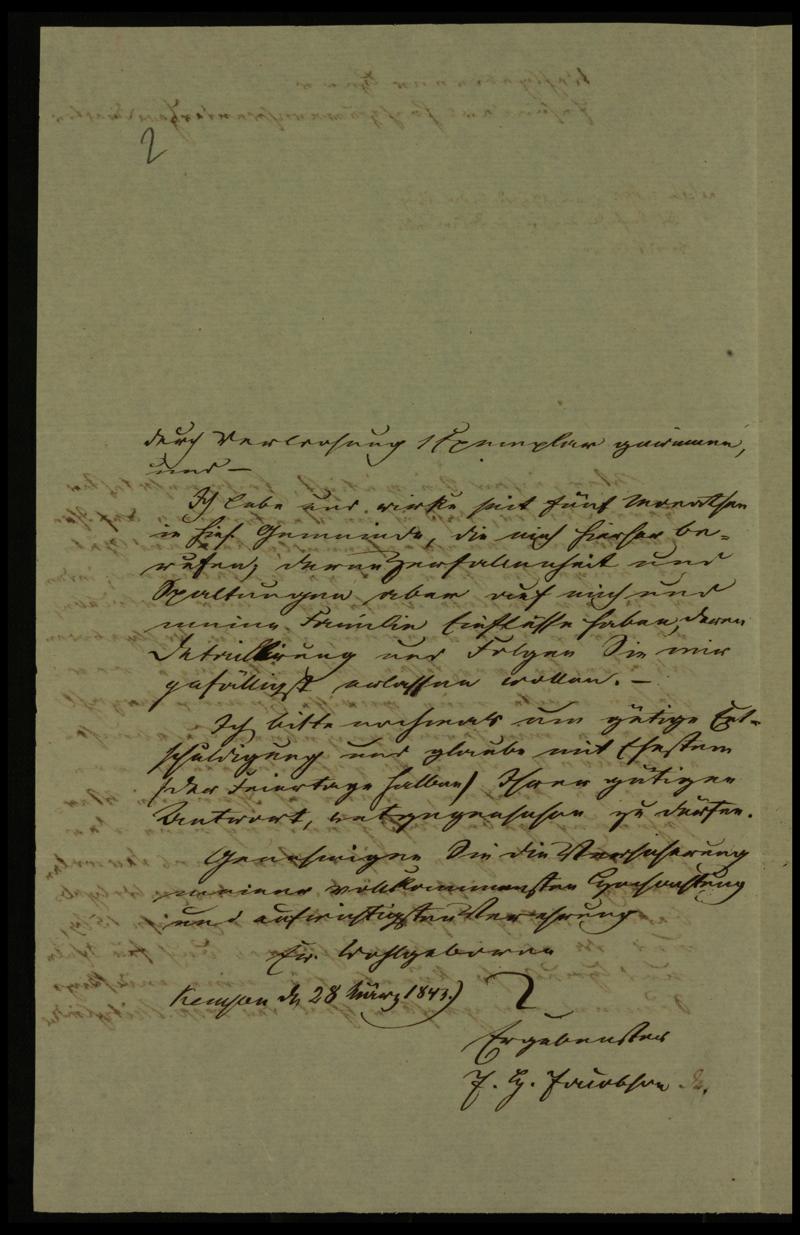 2
durch Verloosung 1 Exemplar gewinnen,
und —
Ich lebe und wirke seit fünf Monathen
in hies. Gemeinde, die mich hierher be-
rufen, deren Zerfallenheit und
Spaltungen aber auf mich und
meine Familie Einflüsse haben, deren
Detaillirung und Folgen Sie mir
gefälligst erlassen wollen. —
Ich bitte nochmals um gütige Ent-
schuldigung und glaube mit Ehestem
(der Feiertage halber) Ihrer gütigen
Antwort, entgegensehen zu dürfen.
Genehmigen Sie die Versicherung
meiner vollkommensten Hochachtung
und aufrichtigsten Verehrung
Ew. Wohlgeboren
Kempen d. 28 März 1843.)
Ergebenster
J. H. Jacobson